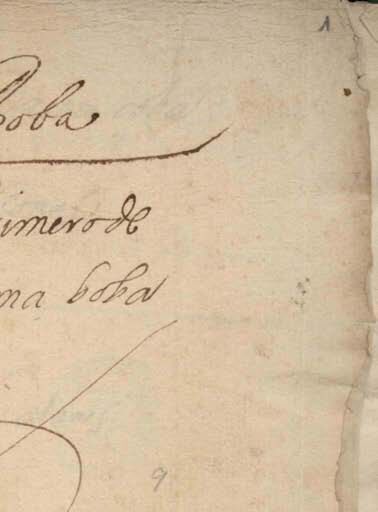 1
boba
imero de
ma boba
9